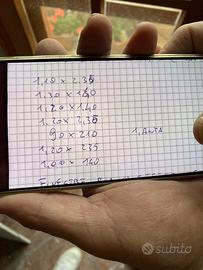 1,10 x 2,35
1,30 x 140
1,20 x 1,40
1,20 x 2,35
90 x 210 1, ANTA
1,20 x 235
1,00 x 140
subito